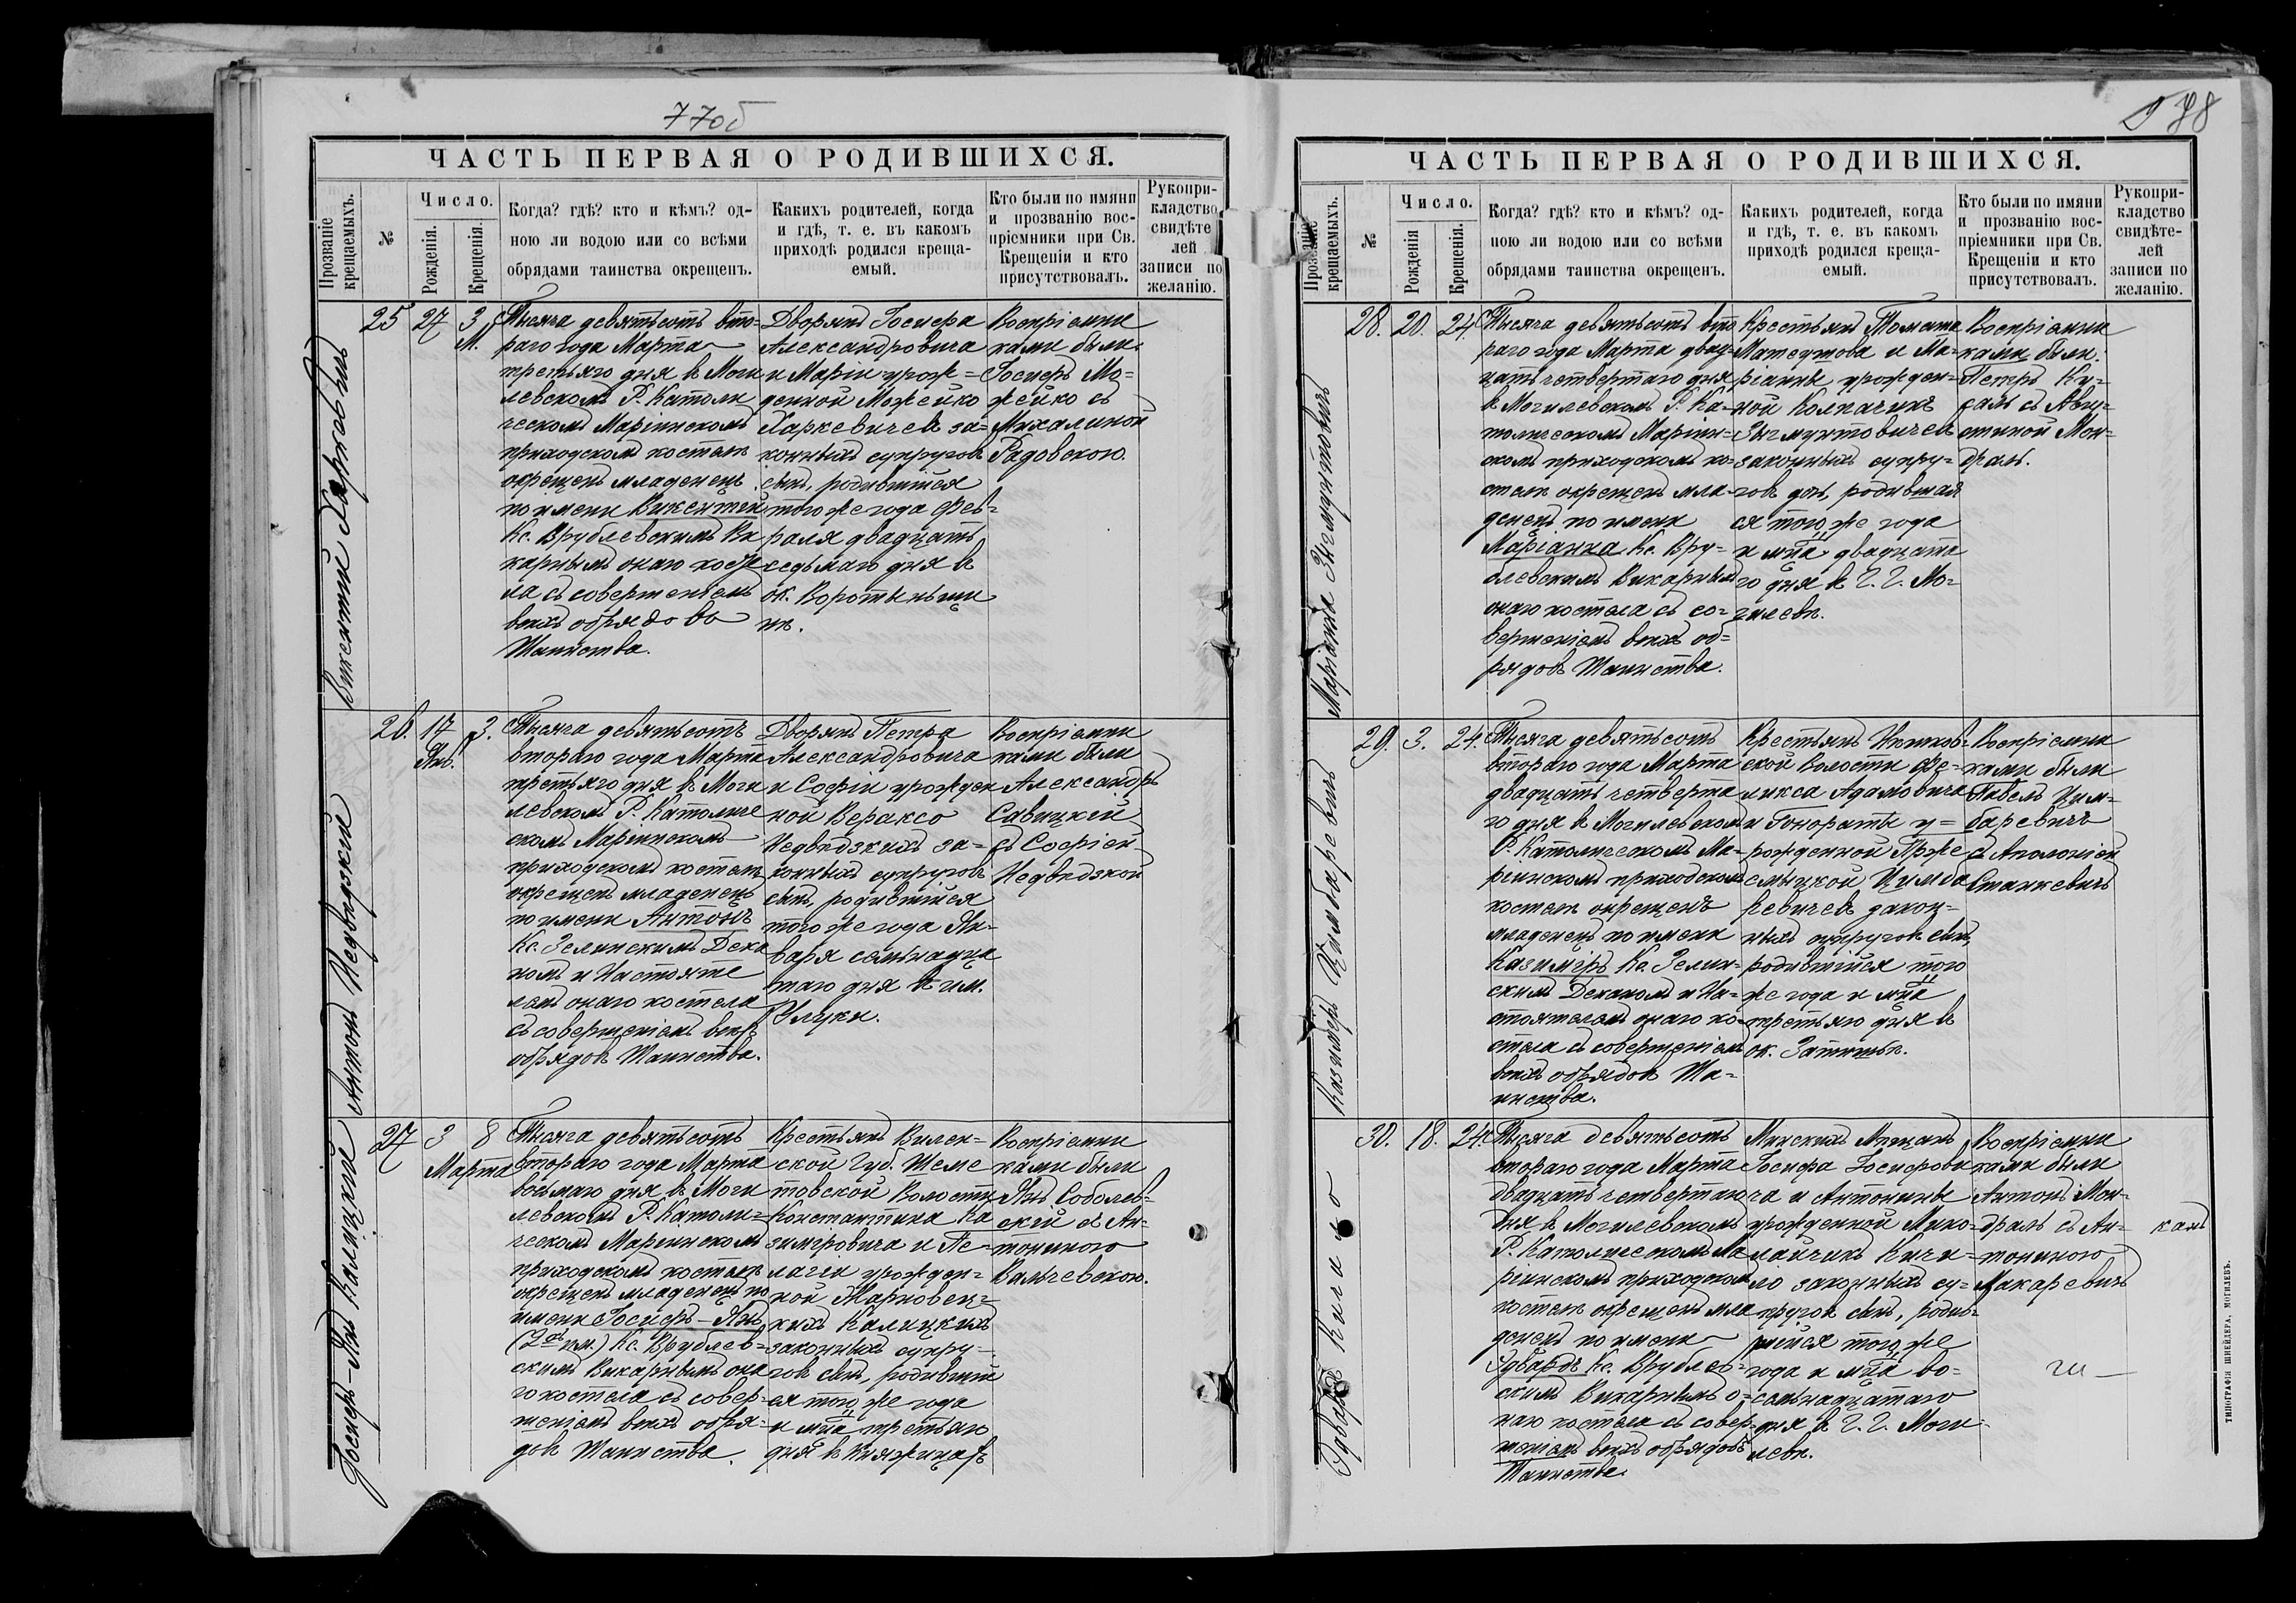 77об
ЧАСТЬ ПЕРВАЯ О РОДИВШИХСЯ.
Прозваніе крещаемыхъ.
№
Число.
Рожденія.
Крещенія.
Когда? гдѣ? кто и кѣмъ? од-
ною ли водою или со всѣми
обрядами таинства окрещенъ.
Какихъ родителей, когда
и гдѣ, т. е. въ какомъ
приходѣ родился креща-
емый.
Кто были по имяни
и прозванію вос-
пріемники при Св.
Крещеніи и кто
присутствовалъ.
Рукопри-
кладство
свидѣте
лей
записи по
желанію.
Викентій Харкевичъ
25
27
3
М.
Тысяча девятьсотъ вто-
раго года Марта
третьяго дня въ Моги
левскомъ Р. Католи
ческомъ Маріинскомъ
приходскомъ костелѣ
окрещенъ младенецъ
по имени Викентій
Кс. Врублевскимъ Ви
карнымъ онаго косте
ла съ совершеніемъ
всѣхъ обрядовъ
Таинства.
Дворянъ Іосифа
Александровича
и Маріи урож=
денной Можейко
Харкевичей за=
конныхъ супруговъ
сынъ, родившійся
того же года Фев=
раля двадцать
седьмаго дня въ
ок. Воротыньщи
нѣ.
Воспріемни
ками были:
Іосифъ Мо=
жейко съ
Михалиной
Радовскою.
Антонъ Недвѣдзкій
26.
17
Янв.
3.
Тысяча девятьсотъ
втораго года Марта
третьяго дня въ Моги
левскомъ Р. Католиче
скомъ Маріинскомъ
приходскомъ костелѣ
окрещенъ младенецъ
по имени Антонъ
Кс. Зелинскимъ Дека
номъ и Настояте
лемъ онаго костела
съ совершеніемъ всѣхъ
обрядовъ Таинства.
Дворянъ Петра
Александровича
и Софіи урожден
ной Вераксо
Недвѣдзкихъ за=
конныхъ супруговъ
сынъ, родившійся
того же года Ян-
варя семьнадца
таго дня въ им.
Улуки.
Воспріемни
ками были
Александръ
Савицкій
съ Софіей
Недвѣдзкой
Іосифъ-Янъ Калицкій
27
3
Марта
8
Тысяча девятьсотъ
втораго года Марта
восьмаго дня въ Моги
левскомъ Р. Католи=
ческомъ Маріинскомъ
приходскомъ костелѣ
окрещенъ младенецъ по
имени Іосифъ-Янъ
(2хъ им.) Кс. Врублев=
скимъ Викарнымъ она
го костела съ совер-
шеніемъ всѣхъ обря-
довъ Таинства.
Крестьянъ Вилен=
ской Губ. Шеме
товской Волости
Константина Ка
зиміровича и Пе-
лагеи урожден=
ной Жарновец=
кихъ Калицкихъ
законныхъ супру-
говъ сынъ, родивший
ся того же года
и мца третьяго
дня въ Княжицахъ
Воспріемни
ками были
Янъ Соболев-
скій съ Ан-
тониною
Вальчевскою.
78
ЧАСТЬ ПЕРВАЯ О РОДИВШИХСЯ.
Прозваніе крещаемыхъ.
№
Число.
Рожденія
Крещенія.
Когда? гдѣ? кто и кѣмъ? од-
ною ли водою или со всѣми
обрядами таинства окрещенъ.
Какихъ родителей, когда
и гдѣ, т. е. въ какомъ
приходѣ родился креща-
емый.
Кто были по имяни
и прозванію вос-
пріемники при Св.
Крещеніи и кто
присутствовалъ.
Рукопри-
кладство
свидѣте-
лей
записи по
желанію.
Маріанна Зигмунтовичъ
28.
20.
24.
Тысяча девятьсотъ вто
раго года Марта двад-
цать четвертаго дня
въ Могилевскомъ Р. Ка-
толическомъ Маріин-
скомъ приходскомъ ко-
стелѣ окрещенъ мла-
денецъ по имени
Маріанна Кс. Вру-
блевскимъ Викарнымъ
онаго костела съ со-
вершеніемъ всѣхъ об=
рядовъ Таинства.
Крестьянъ
и Ма-
ріанны урожден-
ной Колпачикъ
Зигмунтовичей
законныхъ супру-
говъ дочь, родившая
ся того же года
и мца двадцата
го дня въ Г. Г. Мо=
гилевѣ.
Воспріемни
ками были:
Петръ Ку=
саль съ Авгу=
стиной Мон-
драль.
Казиміръ Цимбаревичъ
29.
3.
24.
Тысяча девятьсотъ
втораго года Марта
двадцать четверта
го дня въ Могилевскомъ
Р. Католическомъ Ма-
ріинскомъ приходскомъ
костелѣ окрещенъ
младенецъ по имени
Казиміръ Кс. Зелин-
скимъ Деканомъ и На-
стоятелемъ онаго ко-
стела съ совершеніемъ
всѣхъ обрядовъ Та=
инства.
Крестьянъ
ской Волости Фе-
ликса Адамовича
и Гонораты у=
рожденной Прже
смыцкой Цимба
ревичей закон=
ныхъ супруговъ сынъ,
родившійся того
же года и мца
третьяго дня въ
ок. Затишьѣ.
Воспріемни
ками были
Павелъ Цим=
баревичъ
съ Аполоніей
Станкевичъ
Эдвардъ Кичило
30.
18.
24.
Тысяча девятьсотъ
втораго года Марта
двадцать четвертаго
дня въ Могилевскомъ
Р. Католическомъ Ма
ріинскомъ приходскомъ
костелѣ окрещенъ мла
денецъ по имени
Эдвардъ Кс. Врублев=
скимъ Викарнымъ о=
наго костела съ совер-
шеніемъ всѣхъ обрядовъ
Таинства.
Минскихъ Мѣщанъ
Іосифа Іосифови
ча и Антонины
урожденной Мико-
лайчикъ Кичи=
ло законныхъ су=
пруговъ сынъ, родив=
шійся того же
года и мца во=
семьнадцатаго
дня въ Г. Г. Моги-
левѣ.
Воспріемни
ками были
Антонъ Мон-
драль съ Ан-
тониною
Макаревичъ
ТИПОГРАФІЯ ШНЕЙДЕРА, МОГИЛЕВЪ.